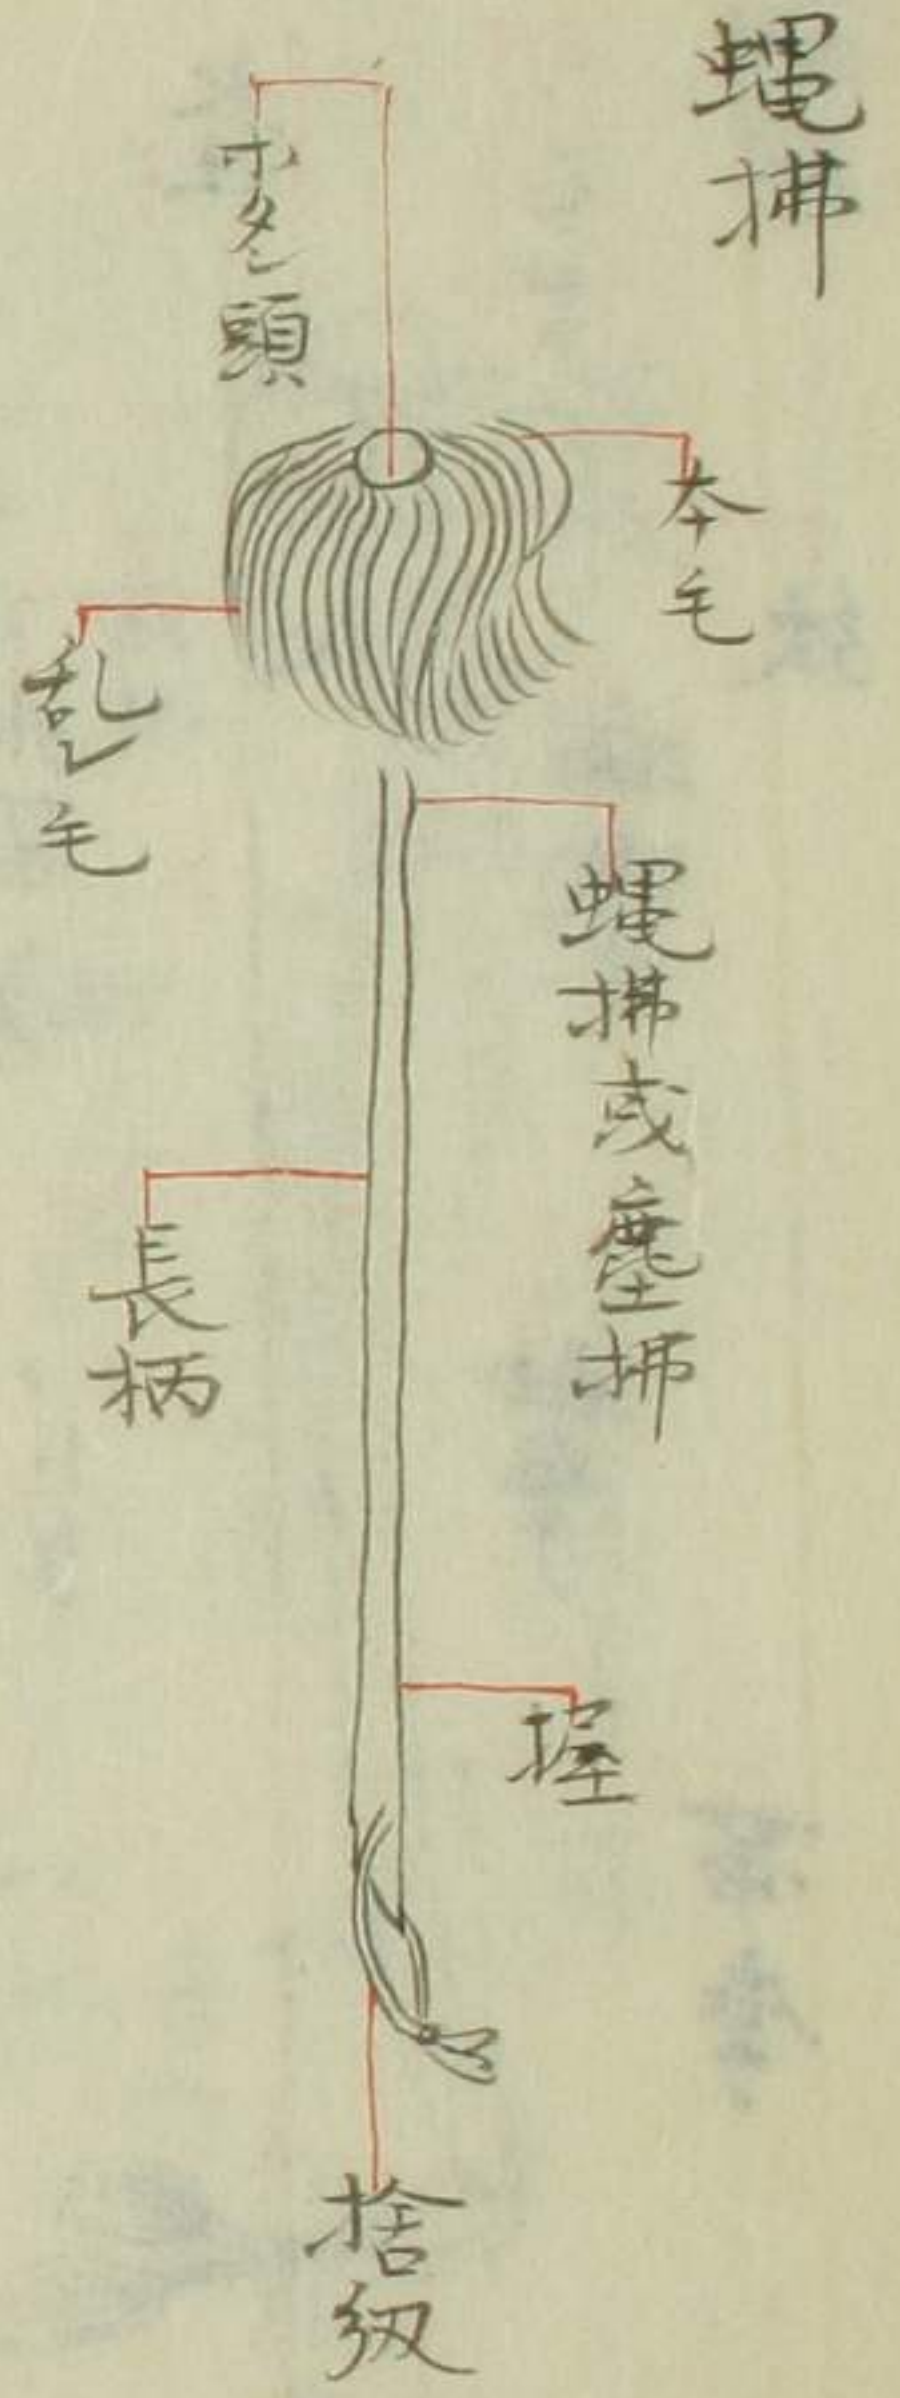 蝿拂
ホタン頭
本毛
乱レ毛
蝿拂或塵拂
長柄
握
捨紐